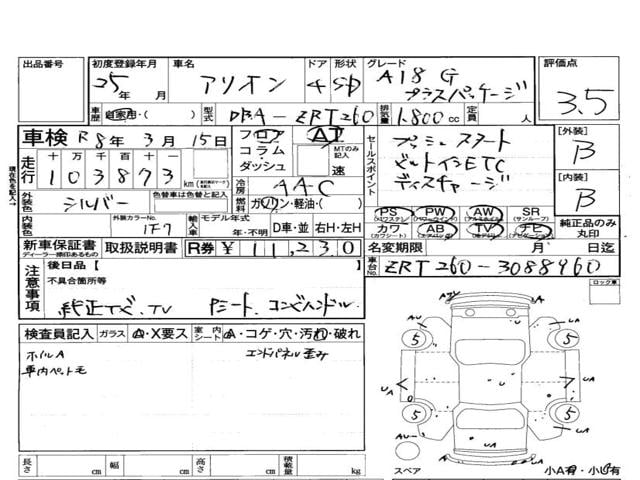 出品番号 初度登録年月 車名 ドア 形状 グレード 評価点
25年 月 アリオン 4 SD A18 G プラスパッケージ 3.5
車歴 自家用・( ) 型式 DBA-ZRT260 排気量 1.800cc 定員 人
車検 R8年3月15日 フロア AT セールスポイント プッシュスタート [外装]
走行 十万千百十一 コラム MTのみ記入 ビルトインETC B
103873 km ダッシュ 速 ディスチャージ [内装]
外装色 シルバー 色替車は色替と記入 冷房 AAC B
燃料 ガソリン・軽油( ) PS (パワステ) PW (パワーウィンド) AW (アルミホイル) SR (サンルーフ) 純正品のみ丸印
内装色 外装カラーNo. 1F7 輸入車 モデル年式 年・不明 D車・並 右H・左H カワ (カワシート) AB (エアバッグ) TV ナビ
新車保証書 ディーラー捺印あるもの 取扱説明書 R券 ¥11,230 名変期限 月 日迄
注意事項 後日品【 】 車台No. ZRT260-3088960 ロック車
不具合箇所等
純正ナビ.TV Pシート コンビハンドル
検査員記入 ガラス A・X要ス 室内シート A・コゲ・穴・汚れ・破れ
ホイルA エンドパネル歪み
車内ペットモ
AU 5 5
UA A U UA
5 5
AU UA
長さ cm 幅 cm 高さ cm 積載量 kg スペア 小A有・小U有